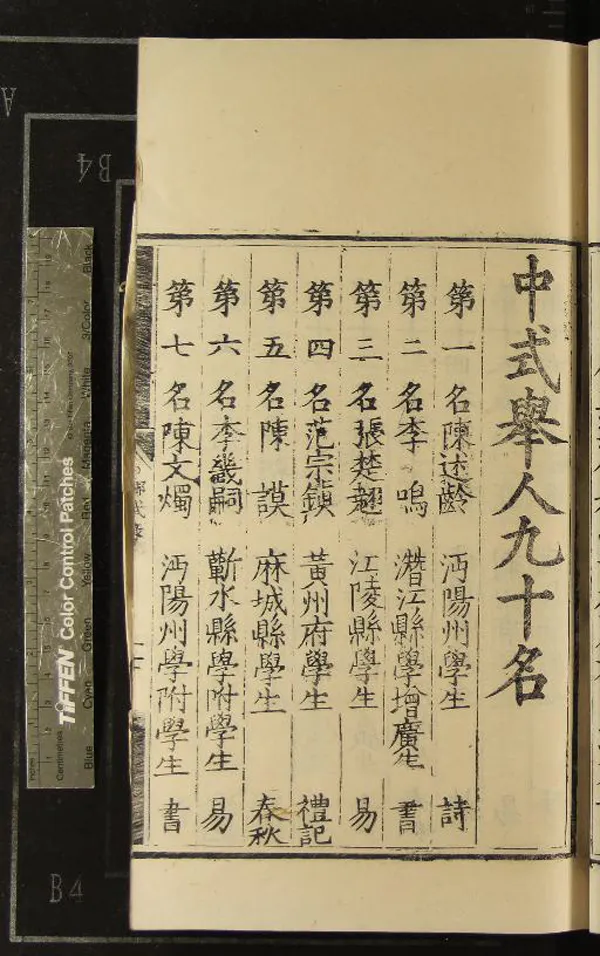 中式舉人九十名
第一名陳述齡 沔陽州學生 詩
第二名李鳴 潛江縣學增廣生 書
第三名張楚 江陵縣學生 易
第四名范宗鎮 黃州府學生 禮記
第五名陳謨 麻城縣學生 春秋
第六名李畿嗣 蘄水縣學附學生 易
第七名陳文燭 沔陽州學附學生 書
TIFFEN Color Control Patches
Blue Cyan Green Yellow Red Magenta White 3/Color Black
Inches
Centimetres
A
B4
B4